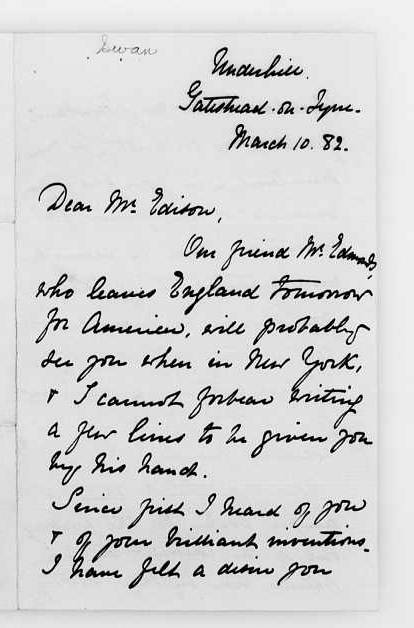 Swan
Underhill.
Gateshead-on-Tyne.
March 10. 82.
Dear Mr. Edison,
Our friend Mr. Edmunds,
who leaves England tomorrow
for America, will probably
see you when in New York,
& I cannot forbear writing
a few lines to be given you
by his hand.
Since first I heard of you
& of your brilliant inventions.
I have felt a desire you